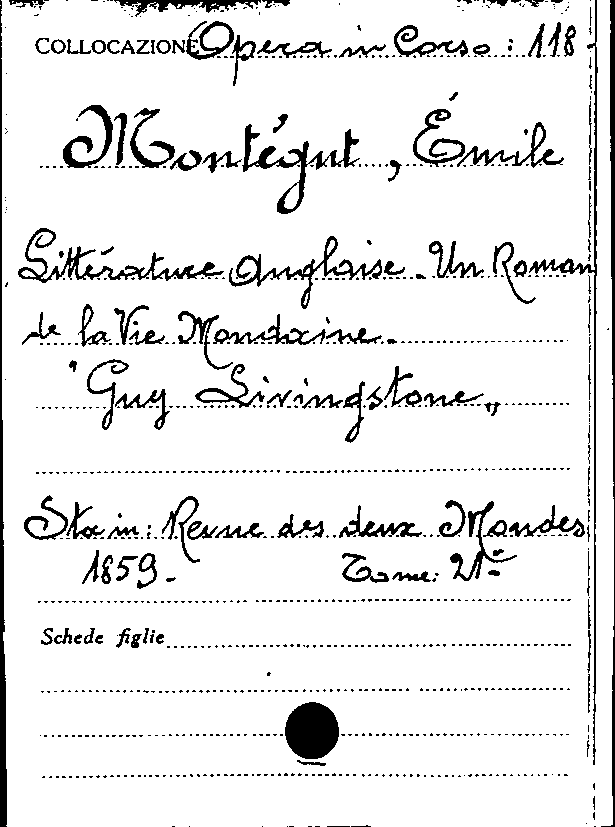 COLLOCAZIONE Opera in Corso: 118-
Montégut, Émile
Littérature Anglaise. Un Roman
de la Vie Mondaine.
"Guy Livingstone„
Sta in: Revue des deux Mondes
1859- Tome: 21º
Schede figlie